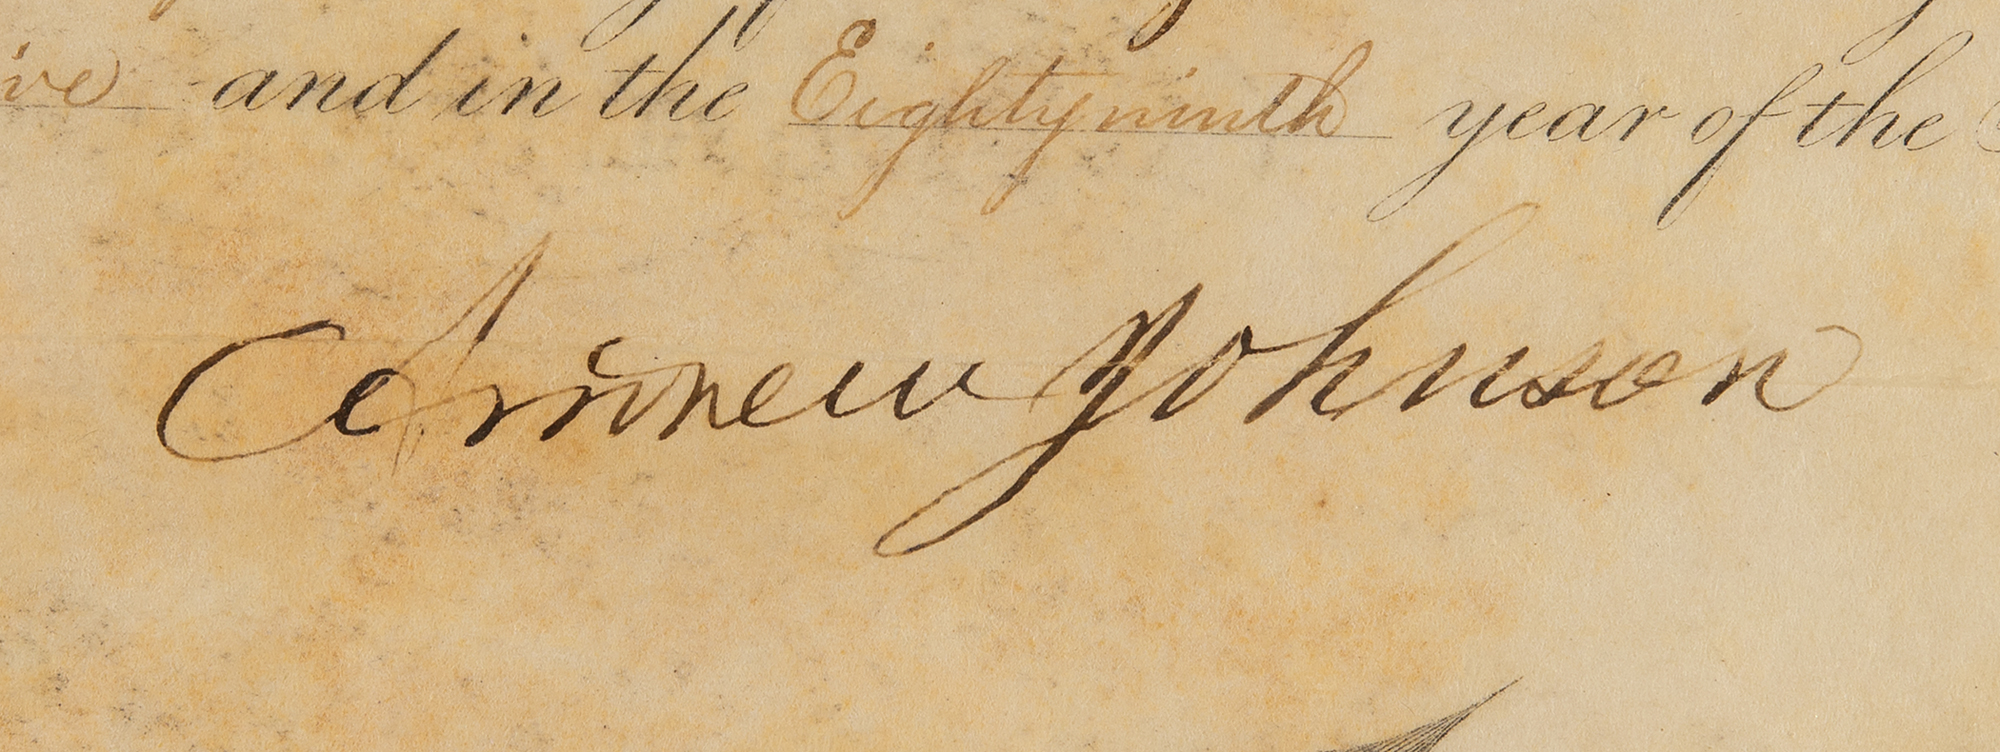 ive and in the Eighty ninth year of the
Andrew Johnson